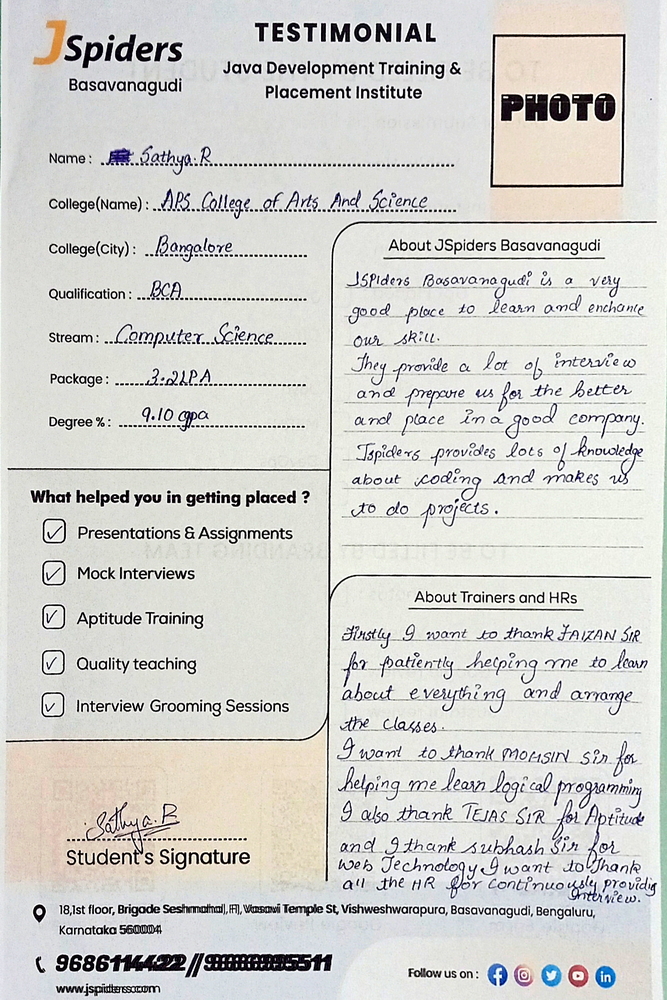 JSpiders
Basavanagudi
TESTIMONIAL
Java Development Training &
Placement Institute
PHOTO
Name : Sathya.R
College(Name) : APS College of Arts And Science
College(City) : Bangalore
Qualification : BCA
Stream : Computer Science
Package : 3.2LPA
Degree % : 9.10 cgpa
What helped you in getting placed ?
Presentations & Assignments
Mock Interviews
Aptitude Training
Quality teaching
Interview Grooming Sessions
Sathya.R
Student's Signature
About JSpiders Basavanagudi
JSPIders Basavanagudi is a very
good place to learn and enchance
our skill.
They provide a lot of interview
and prepare us for the better
and place in a good company.
Jspiders provides lots of knowledge
about coding and makes us
to do projects.
About Trainers and HRs
Firstly I want to thank FAIZAN SIR
for patiently helping me to learn
about everything and arrange
the classes.
I want to thank MOHSIN Sir for
helping me learn logical programming
I also thank TEJAS SIR for Aptitude
and I thank subhash Sir for
Web Technology I want to thank
all the HR for continuously providig
Interview.
18,1st floor, Brigade Seshmahal, Vasavi Temple St, Vishweshwarapura, Basavanagudi, Bengaluru,
Karnataka 560004
9686114422 //
www.jspiders.com
Follow us on :